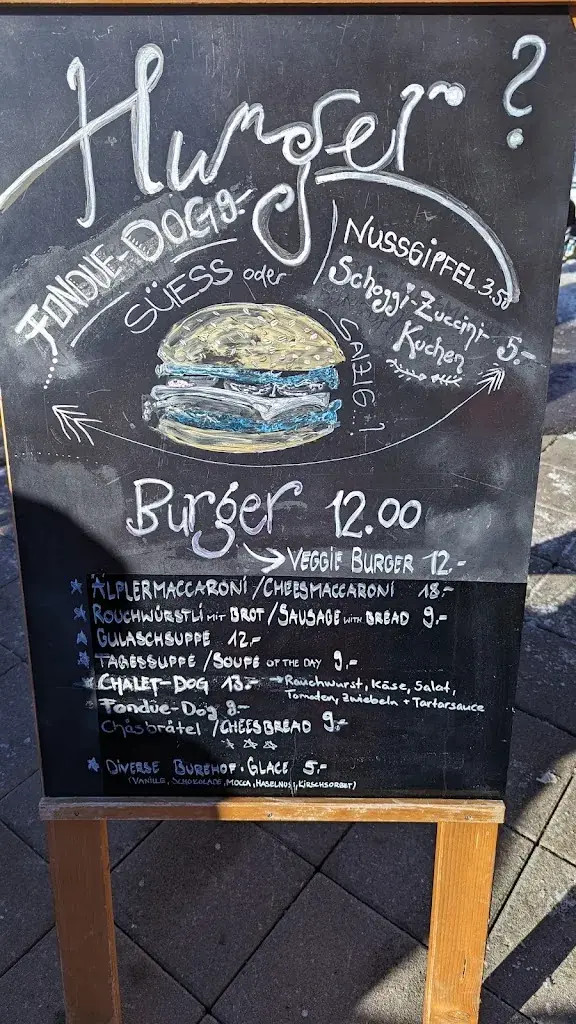 Hunger?
FONDUE-DOG 9.-
SÜESS oder
SALZIG..?
NUSSGIPFEL 3.50
Schoggi-Zuccini-
Kuchen 5.-
Burger 12.00
VEGGIE BURGER 12.-
ÄLPLERMACCARONI / CHEESMACCARONI 18.-
ROUCHWÜRSTLI MIT BROT / SAUSAGE WITH BREAD 9.-
GULASCHSUPPE 12.-
TAGESSUPPE / SOUPE OF THE DAY 9.-
CHALET-DOG 13.- → Rauchwurst, Käse, Salat,
Tomaten, Zwiebeln + Tartarsauce
Fondue-Dog 9.-
Chäsbrätel / CHEESBREAD 9.-
DIVERSE BUREHOF-GLACE 5.-
(VANILLE, SCHOKOLADE, MOCCA, HASELNUSS, KIRSCHSORBET)